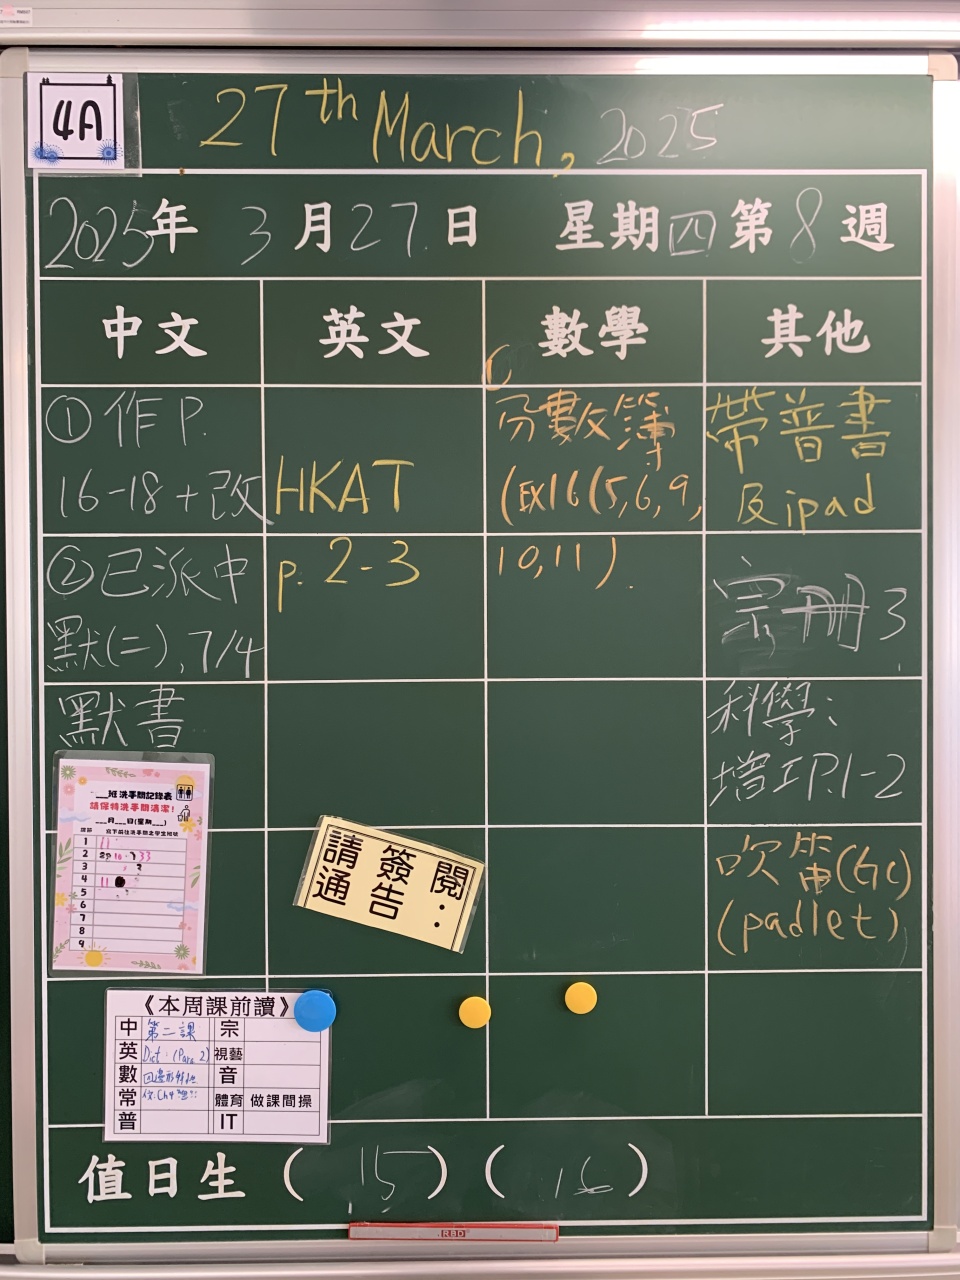 4A
27th March, 2025
2025年 3月27日 星期四第8週
中文 英文 數學 其他
①作P.
16-18+改
②已派中
默(二), 7/4
默書
HKAT
p. 2-3
分數簿
(取16(5,6,9,
10,11).
帶普書
及ipad
宗冊3
科學:
增工P.1-2
吹笛(Gc)
(padlet)
___班洗手間記錄表
請保持洗手間清潔!
___月___日(星期___)
課節 寫下前往洗手間之學生班號
1 11
2
3
4 11
5
6
7
8
9
請簽閱:
通告
《本周課前讀》
中 第二課 宗
英 Dict: (Para 2) 視藝
數 四邊形特性 音
常 體育 做課間操
普 IT
值日生 (15) (16)
RBD